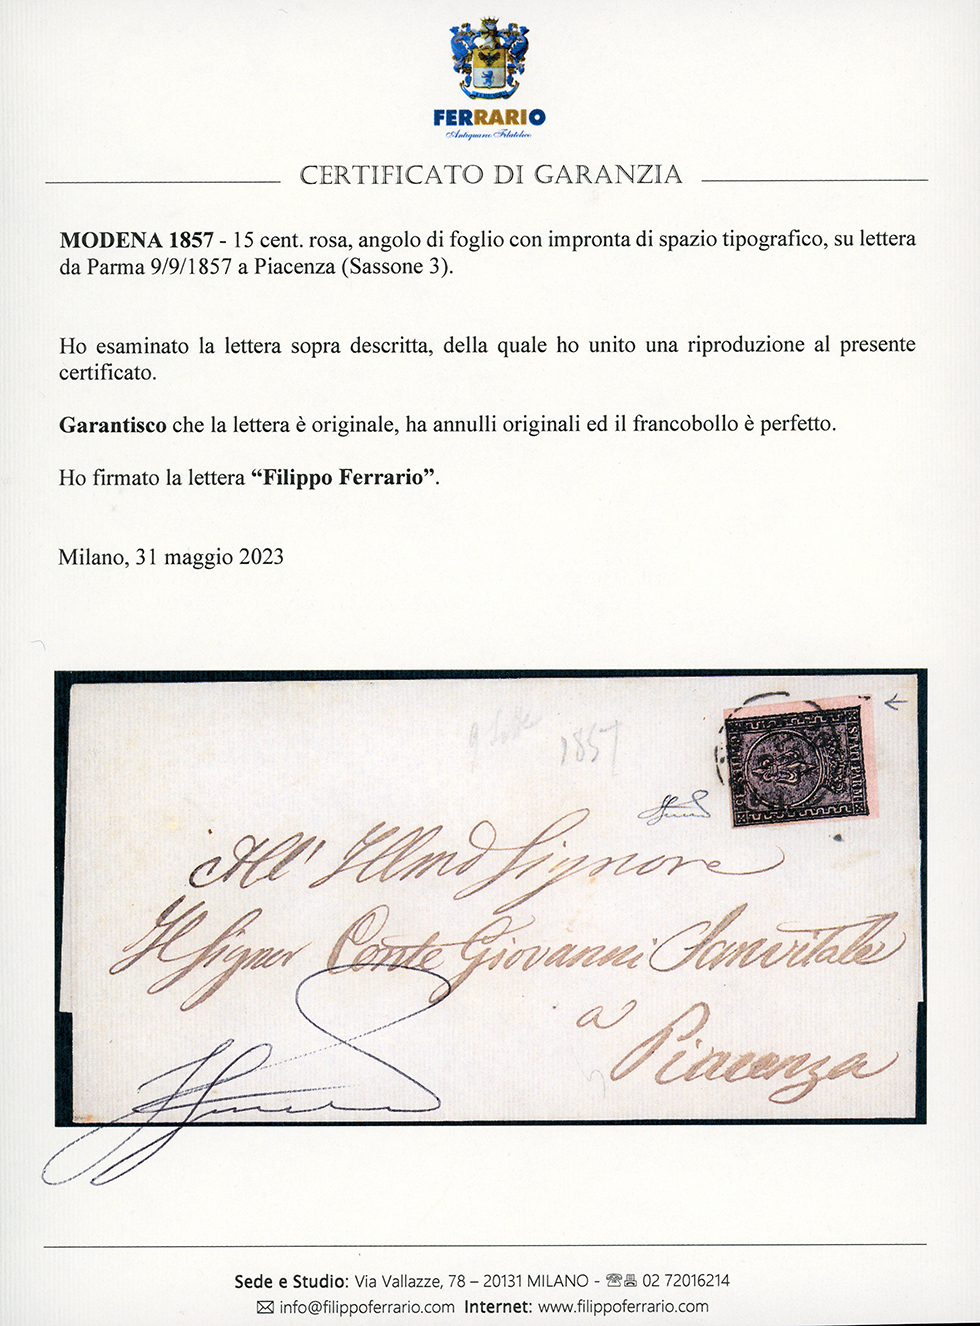 FERRARIO
Antiquario Filatelico
CERTIFICATO DI GARANZIA
MODENA 1857 - 15 cent. rosa, angolo di foglio con impronta di spazio tipografico, su lettera
da Parma 9/9/1857 a Piacenza (Sassone 3).
Ho esaminato la lettera sopra descritta, della quale ho unito una riproduzione al presente
certificato.
Garantisco che la lettera è originale, ha annulli originali ed il francobollo è perfetto.
Ho firmato la lettera “Filippo Ferrario”.
Milano, 31 maggio 2023
1857
STATI PARM
All' Illmo Signore
Il Signor Conte Giovanni Sanvitale
a
Piacenza
Sede e Studio: Via Vallazze, 78 – 20131 MILANO - 02 72016214
info@filippoferrario.com Internet: www.filippoferrario.com